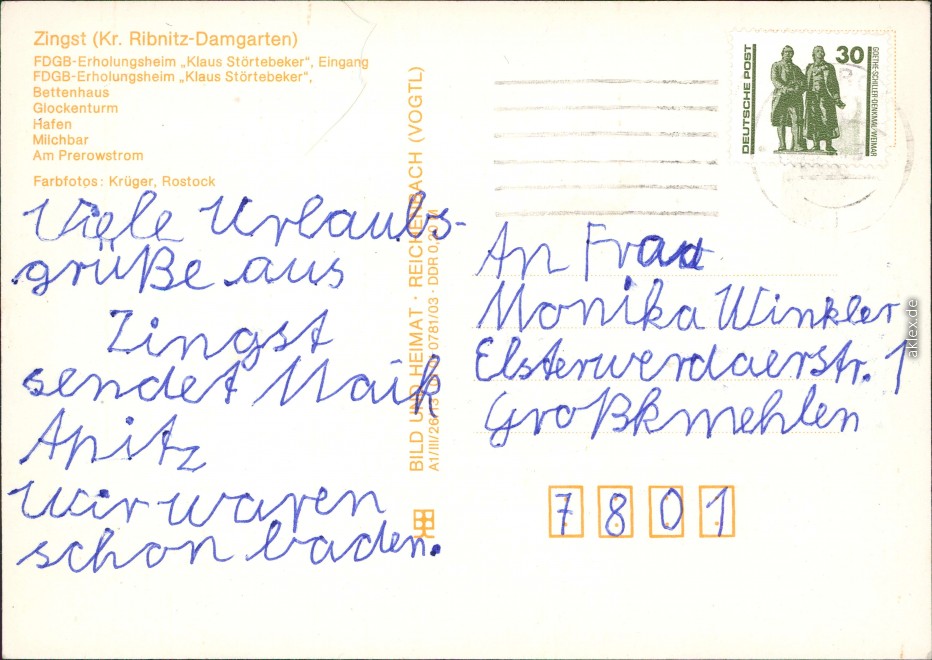 Zingst (Kr. Ribnitz-Damgarten)
FDGB-Erholungsheim „Klaus Störtebeker“, Eingang
FDGB-Erholungsheim „Klaus Störtebeker“,
Bettenhaus
Glockenturm
Hafen
Milchbar
Am Prerowstrom
Farbfotos: Krüger, Rostock
Viele Urlaubs-
grüße aus
Zingst
sendet Maik
Apitz
Wir waren
schon baden.
BILD UND HEIMAT · REICHENBACH (VOGTL)
A1/III/26/13 0781/03 · DDR
DEUTSCHE POST
30
GOETHE-SCHILLER-DENKMAL/WEIMAR
An Frau
Monika Winkler
Elsterwerdaerstr. 1
Großkmehlen
7801
aklex.de